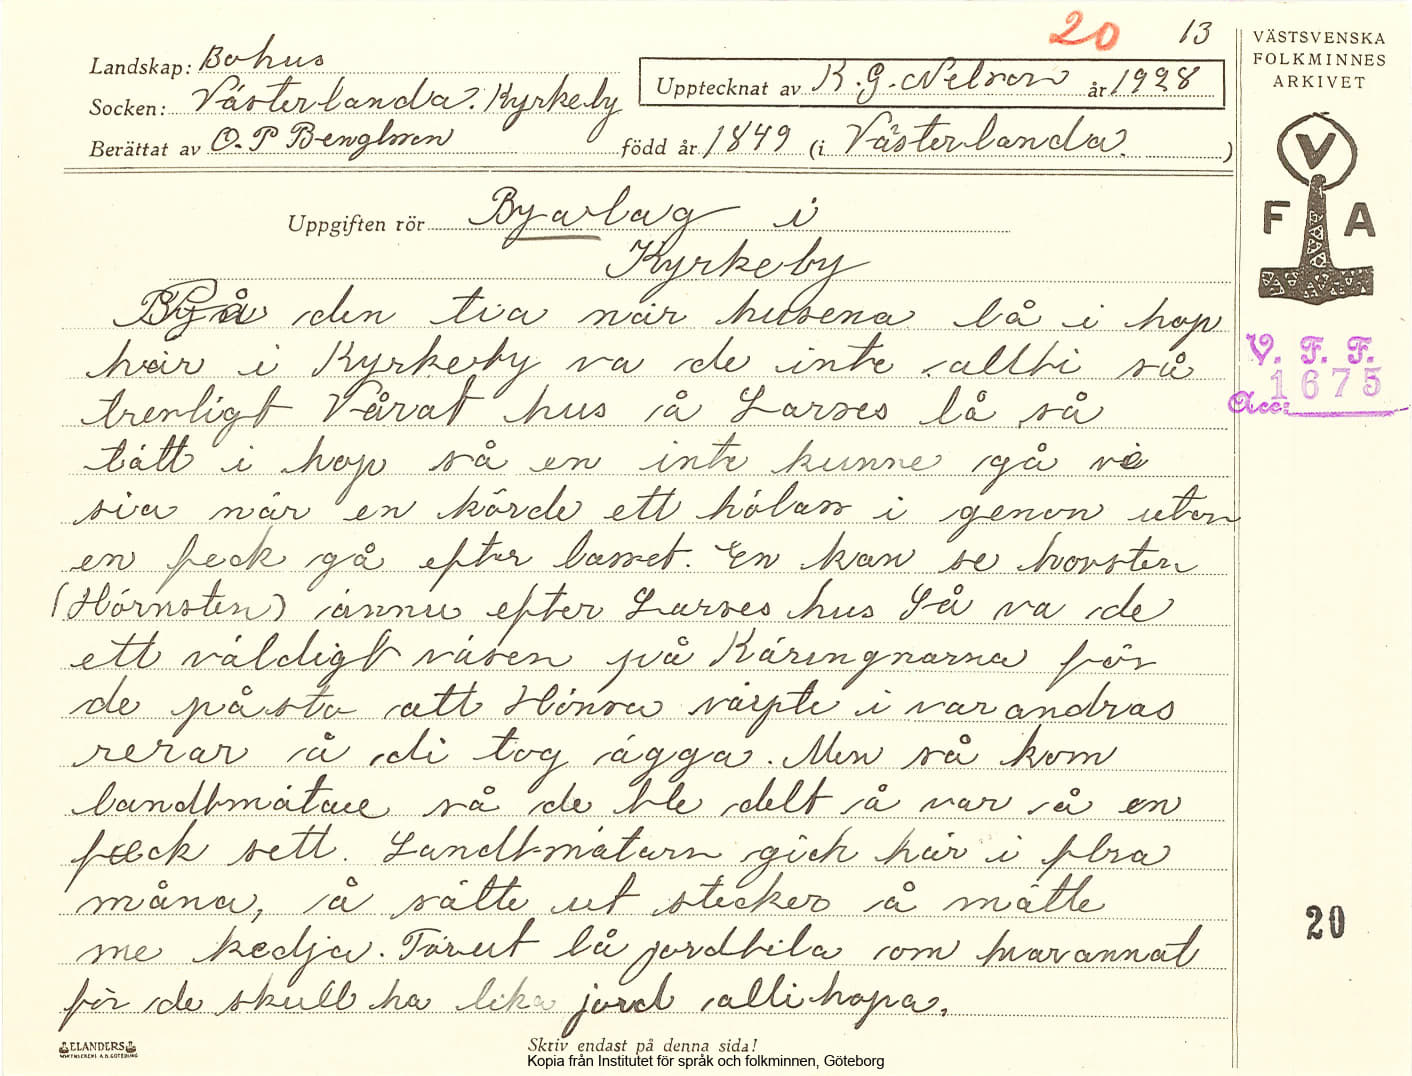 20 13
Landskap: Bohus
Socken: Västerlanda. Kyrkeby
Upptecknat av K. G. Nelson år 1928
Berättat av O. P Bengtsson född år 1849 (i Västerlanda. )
VÄSTSVENSKA
FOLKMINNES
ARKIVET
V
F A
Uppgiften rör Byalag i
Kyrkeby
På den tia när husena lå i hop
här i Kyrkeby va de inte allti så
trevligt Vårat hus å Larses lå så
tätt i hop så en inte kunne gå ve
sia när en körde ett hölass i genon uton
en feck gå efter lasset. En kan se hvorsten
(Hörnsten) ännu efter Larses hus Så va de
ett väldigt väsen på Käringnarna för
de påsto att Hönsa värpte i varandras
rerar å di tog ägga. Men så kom
landtmätare så de ble delt å var å en
feck sett. Landtmätarn gick här i flra
måna, å sätte ut stecker å mätte
me kedja. Förut lå jordbita om hvarannat
för de skull ha lika jord allihopa.
V. F. F.
Acc: 1675
20
ELANDERS
Skriv endast på denna sida!
Kopia från Institutet för språk och folkminnen, Göteborg